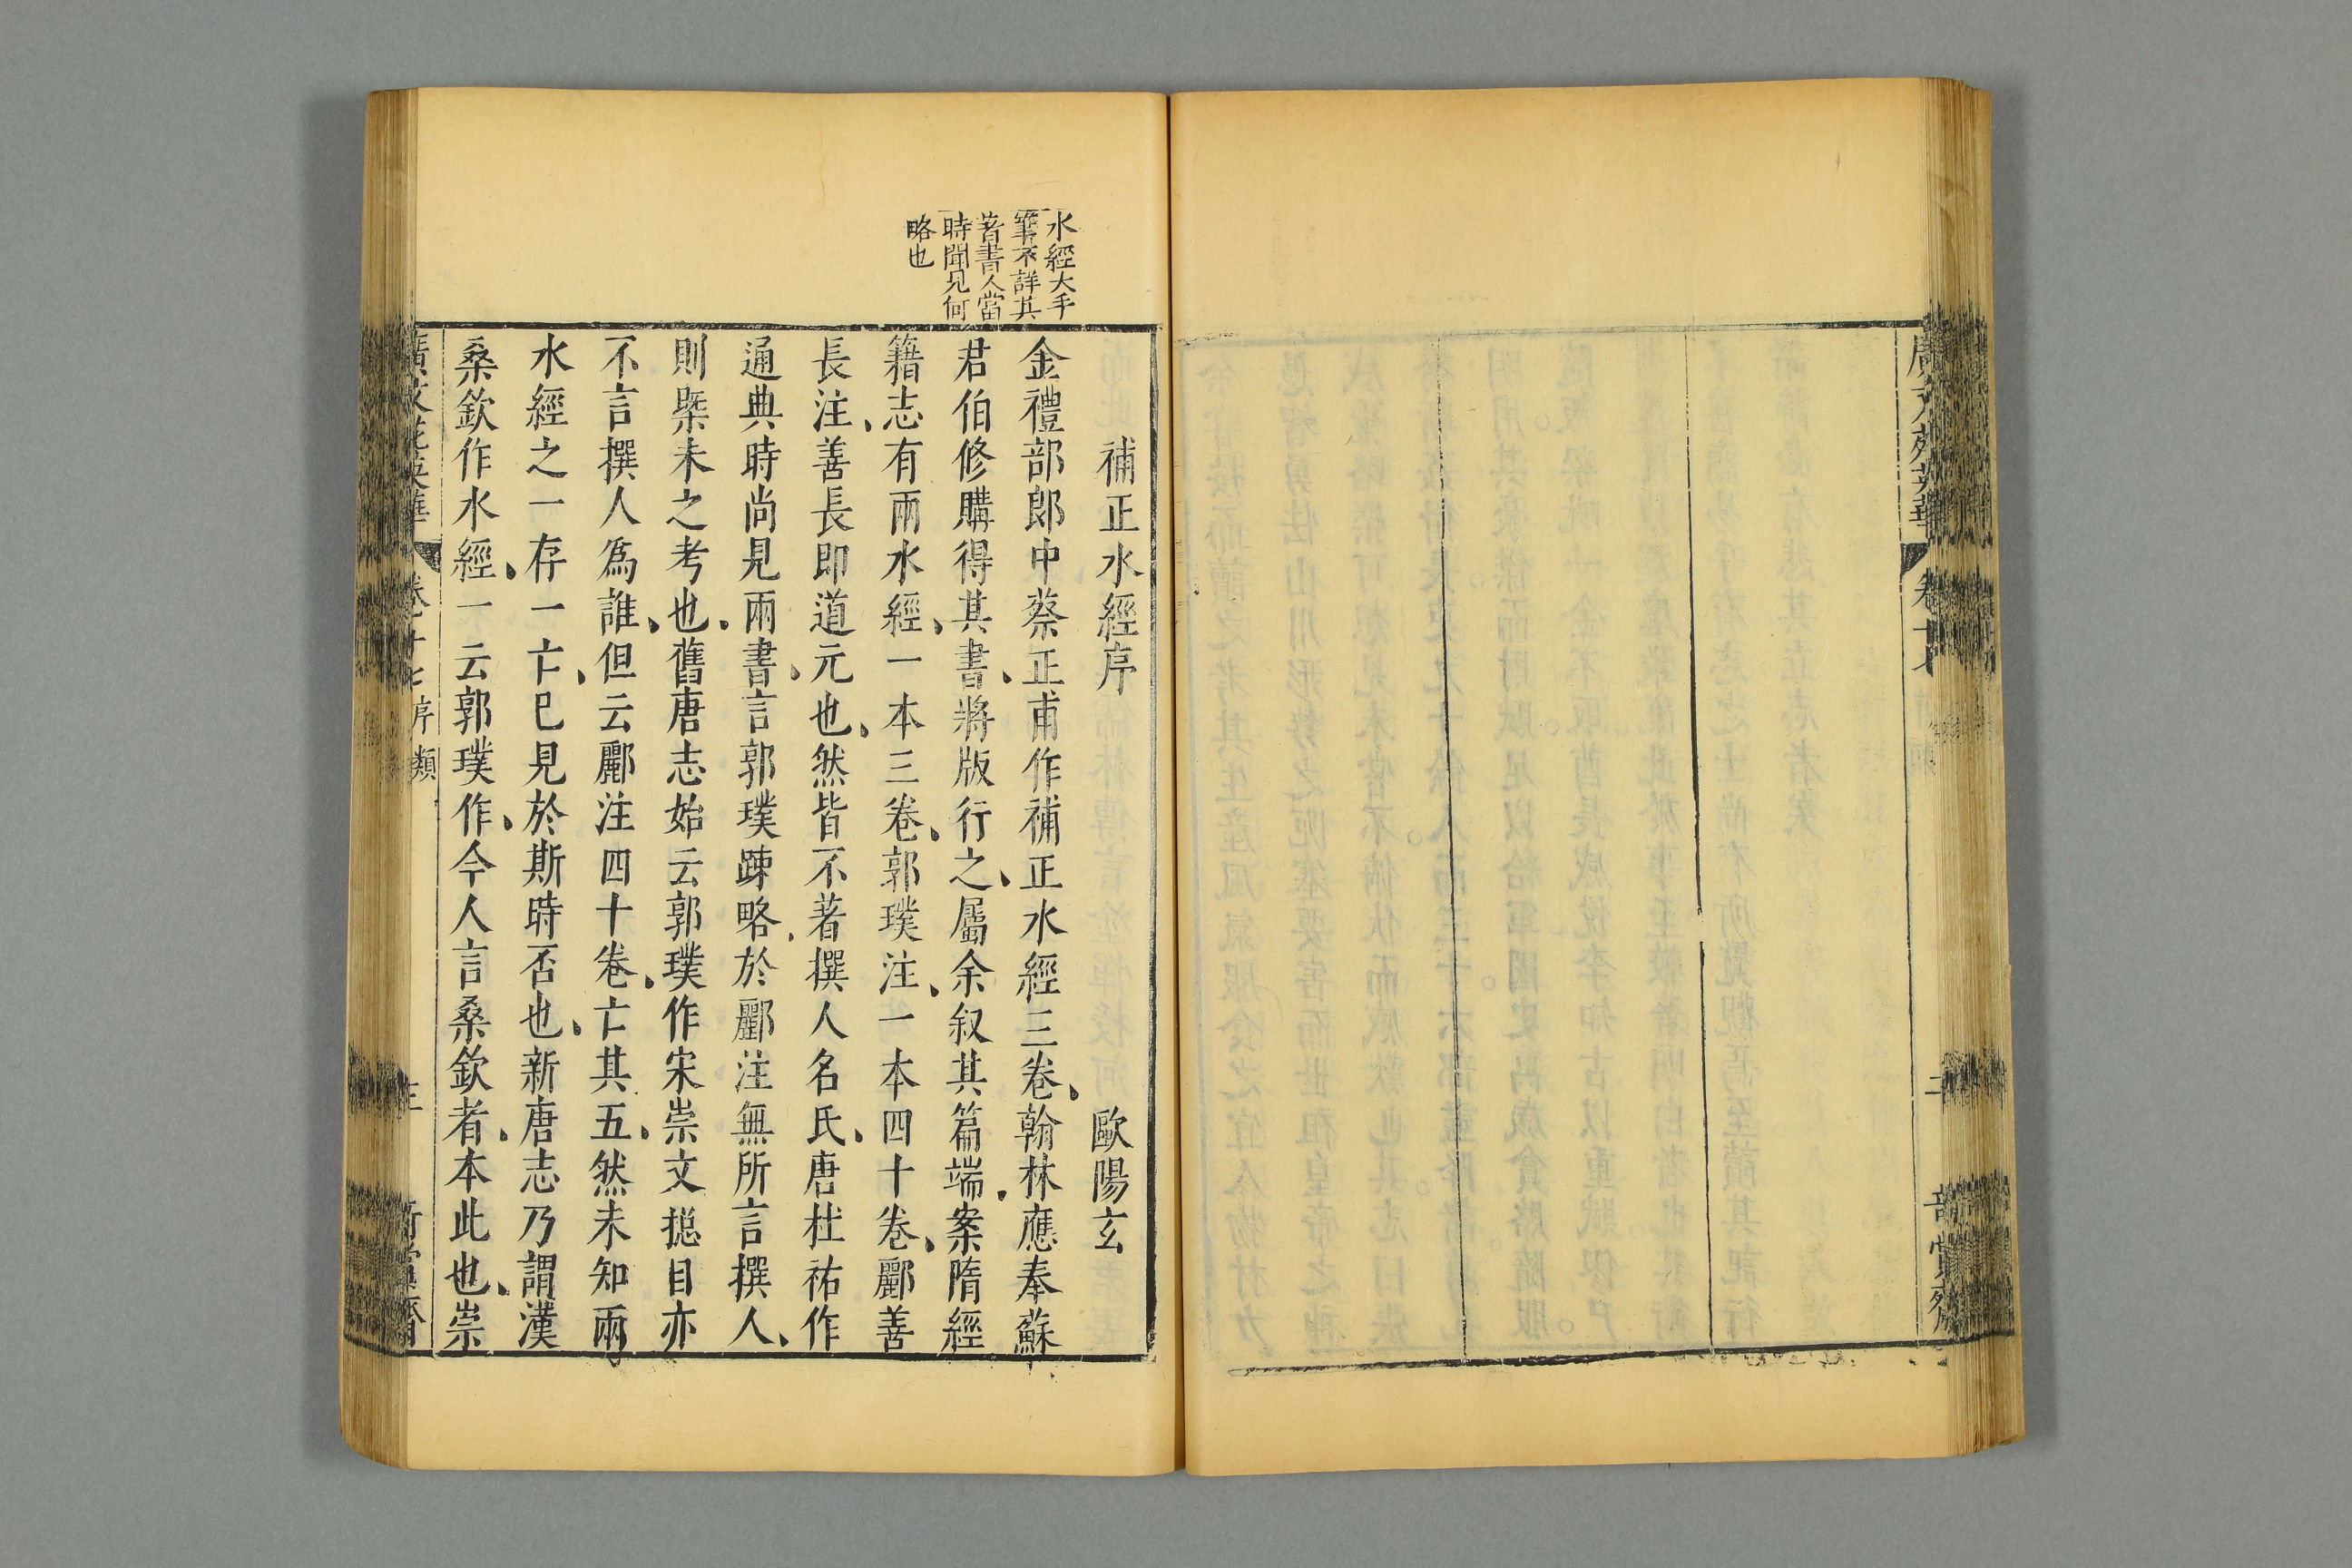 廣文苑英華 卷十
水經大手
筆不詳其
著書人當
時聞見何
略也
補正水經序 歐陽玄
金禮部郎中蔡正甫作補正水經三卷翰林應奉蘇
君伯修購得其書將版行之屬余叙其篇端案隋經
籍志有兩水經一本三卷郭璞注一本四十卷酈善
長注善長即道元也然皆不著撰人名氏唐杜祐作
通典時尚見兩書言郭璞踈略於酈注無所言撰人
則槩未之考也舊唐志始云郭璞作宋崇文搃目亦
不言撰人爲誰但云酈注四十卷亡其五然未知兩
水經之一存一亡已見於斯時否也新唐志乃謂漢
桑欽作水經一云郭璞作今人言桑欽者本此也崇
廣文苑英華 卷十七 序類